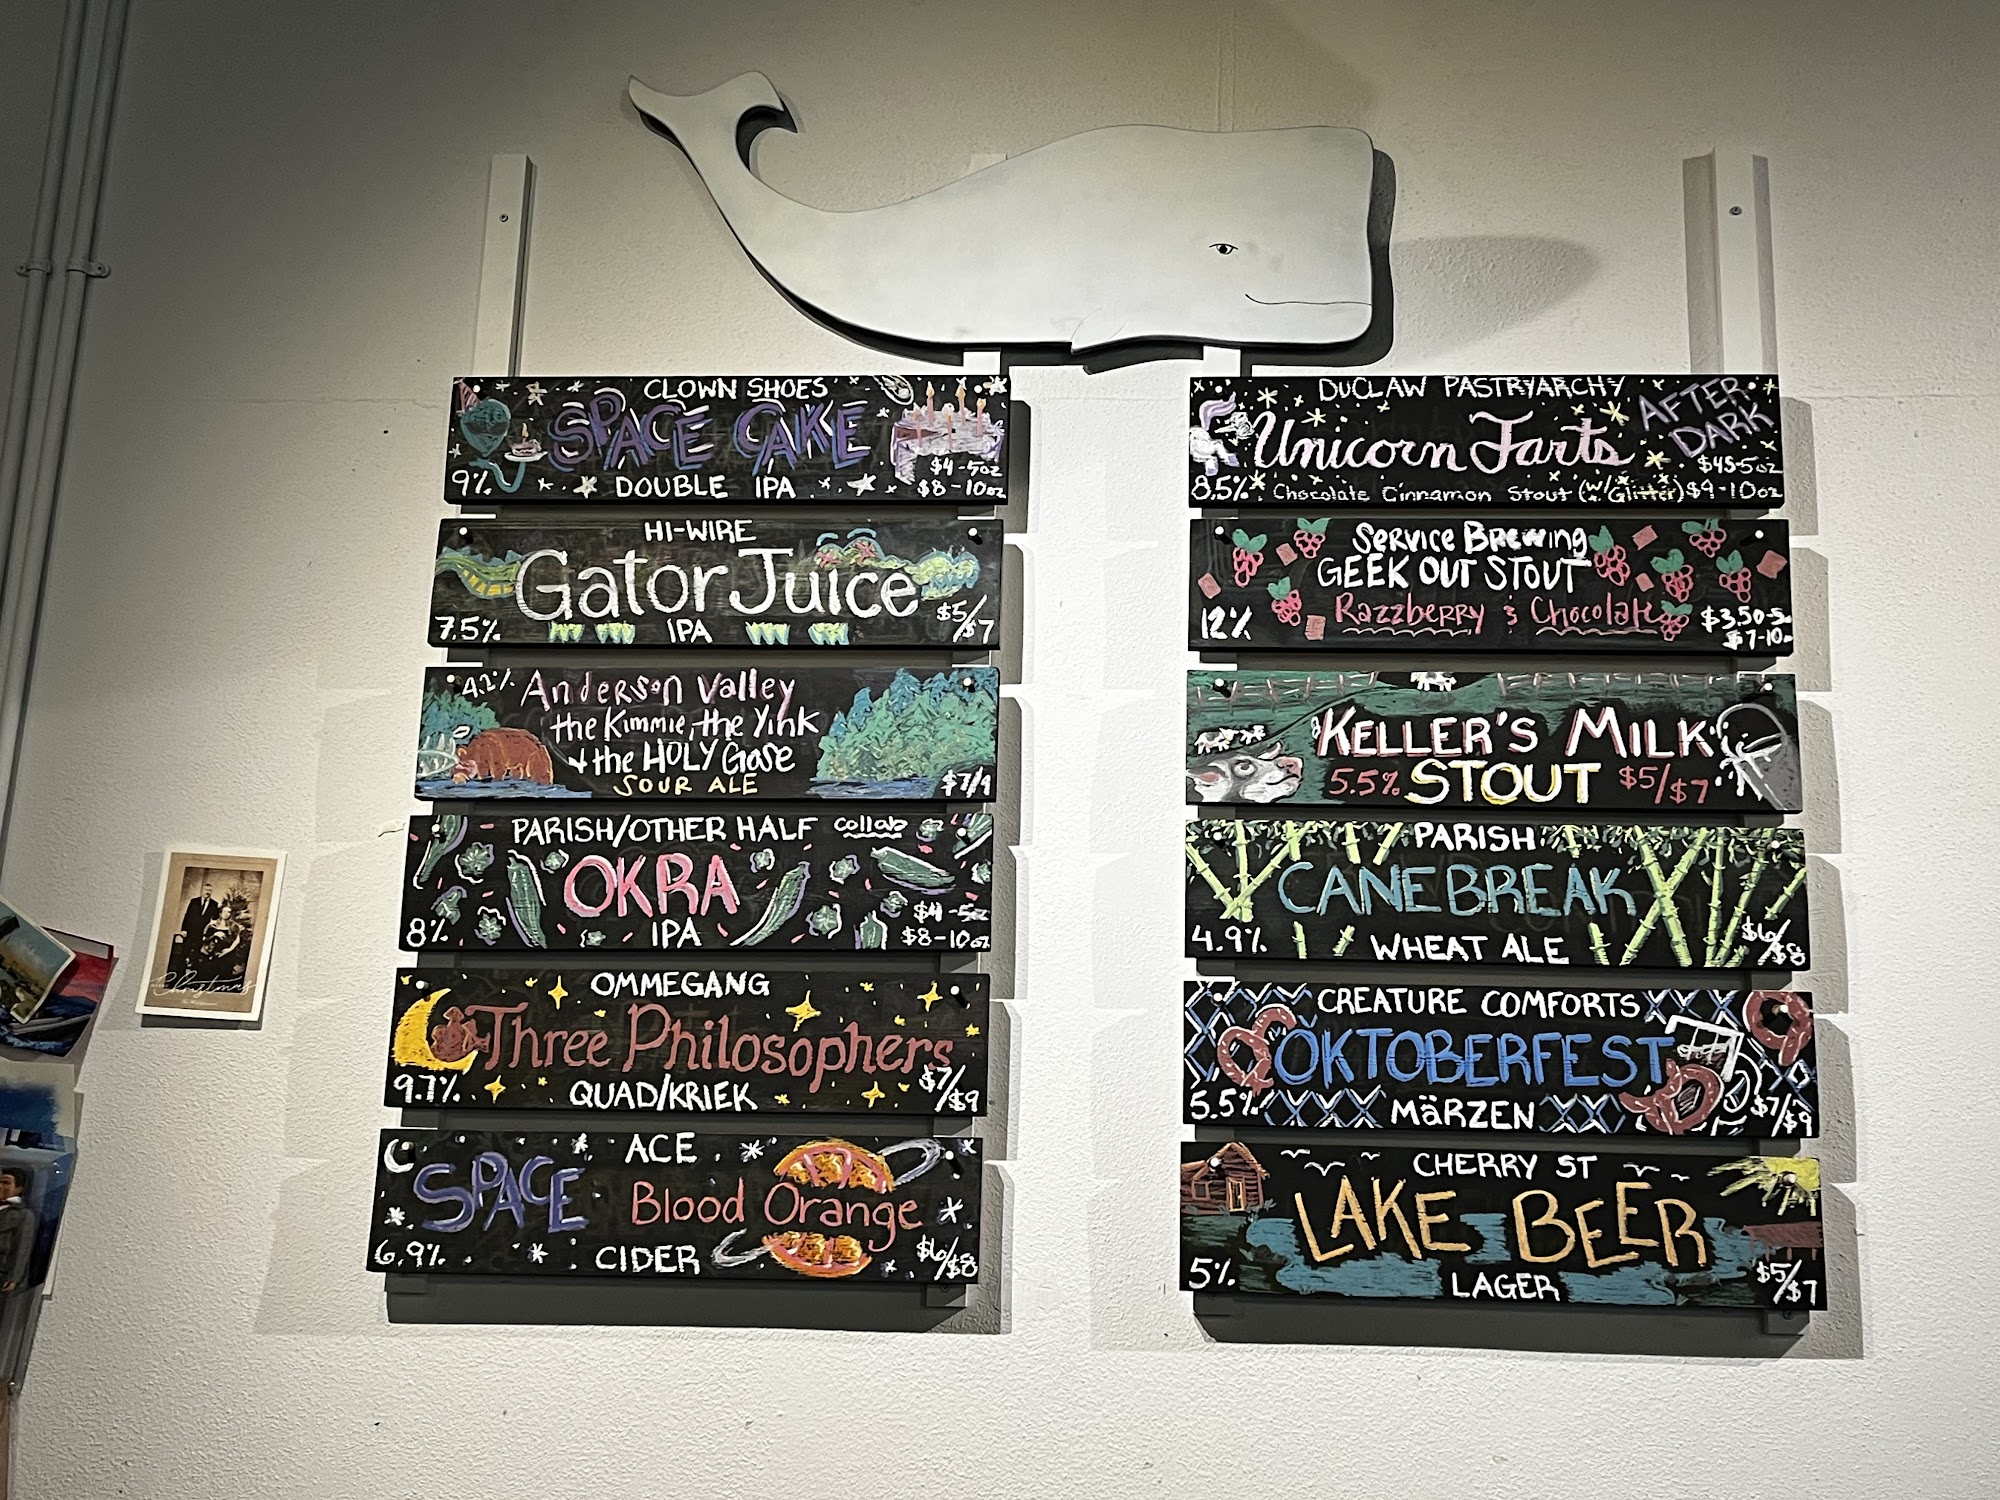 CLOWN SHOES
SPACE CAKE
$4-5oz
9% DOUBLE IPA $8-10oz
HI-WIRE
Gator Juice
7.5% IPA $5/$7
4.2% Anderson Valley
the Kimmie, the Yink
+ the HOLY Gose
SOUR ALE $7/9
PARISH/OTHER HALF collab
OKRA
$4-5oz
8% IPA $8-10oz
OMMEGANG
Three Philosophers
9.7% QUAD/KRIEK $7/$9
ACE
SPACE Blood Orange
6.9% CIDER $6/$8
DUCLAW PASTRYARCHY
Unicorn Farts AFTER DARK
8.5% Chocolate Cinnamon Stout (w/ Glitter) $9-10oz
Service Brewing
GEEK OUT STOUT
Razzberry & Chocolate
12% $3.50-5
$7-10
KELLER'S MILK
5.5% STOUT $5/$7
PARISH
CANEBREAK
4.9% WHEAT ALE $6/$8
CREATURE COMFORTS
ÖKTOBERFEST
5.5% MÄRZEN $7/$9
CHERRY ST
LAKE BEER
5% LAGER $5/$7
Christmas